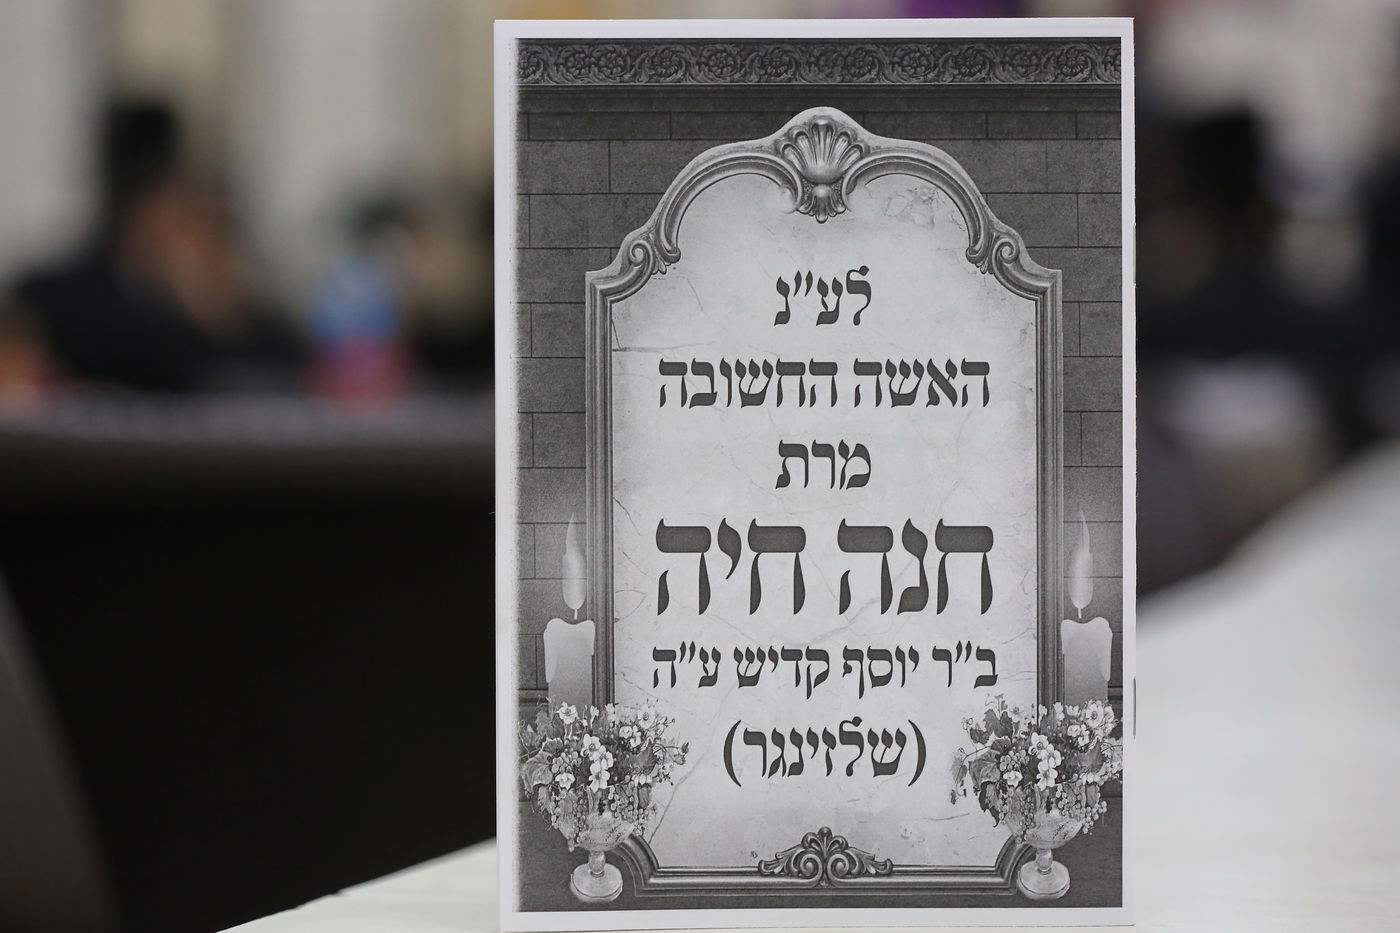 לע"נ
האשה החשובה
מרת
חנה חיה
ב"ר יוסף קדיש ע"ה
(שלזינגר)